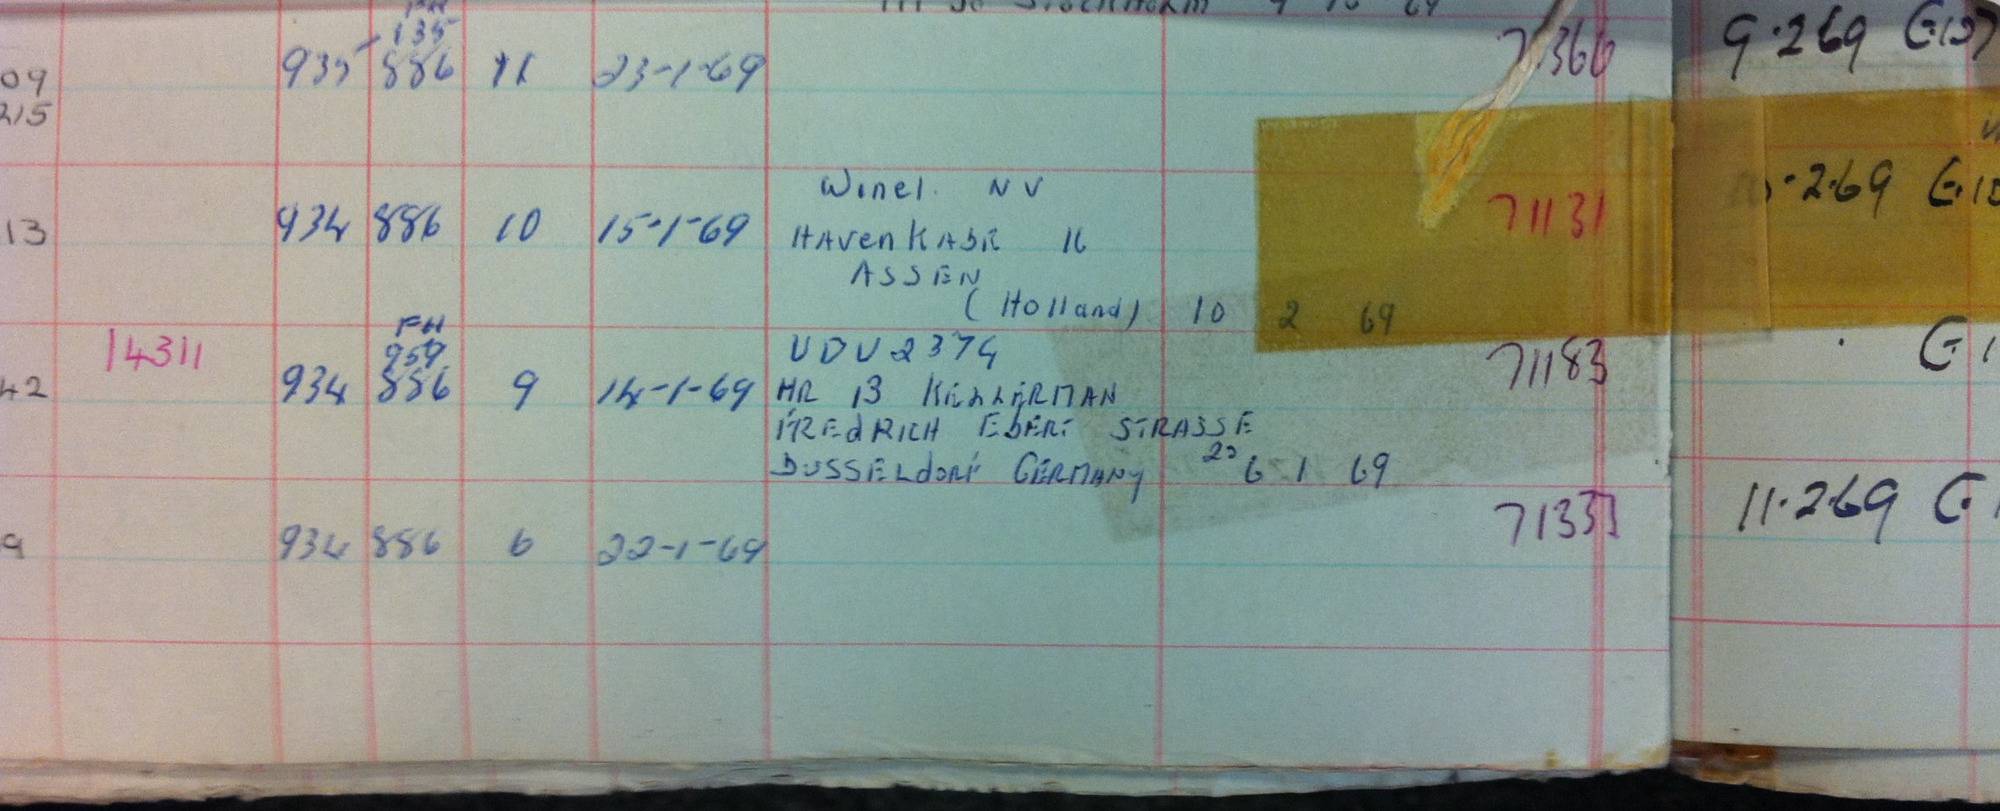 STOCKHOLM 9 10 69
FH
135
09 935 886 11 23-1-69 71366 9·2·69
215
Winel. NV
13 934 886 10 15-1-69 HAVENKADE 16 71131 ·2·69
ASSEN
(Holland) 10 2 69
FH
14311 959 VDV 237G 71183
42 934 886 9 14-1-69 HR B KELLERMAN
FREDRICH EBERT STRASSE
DUSSELdORF GERMANY 6 1 69
9 934 886 6 22-1-69 71333 11·2·69